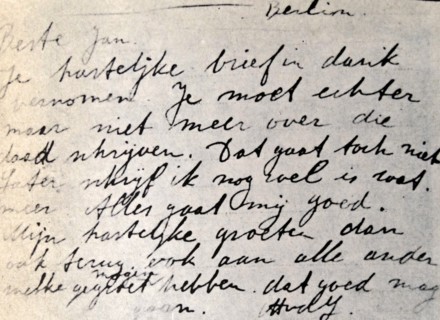 Berlin.
Beste Jan.
Je hartelijke brief in dank
vernomen. Je moet echter
maar niet meer over die
daad schrijven. Dat gaat toch niet
Later schrijf ik nog wel is wat.
meer Alles gaat mij goed.
Mijn hartelijke groeten dan
ook terug ook aan alle ander
welke hebben. dat goed mag
gaan.